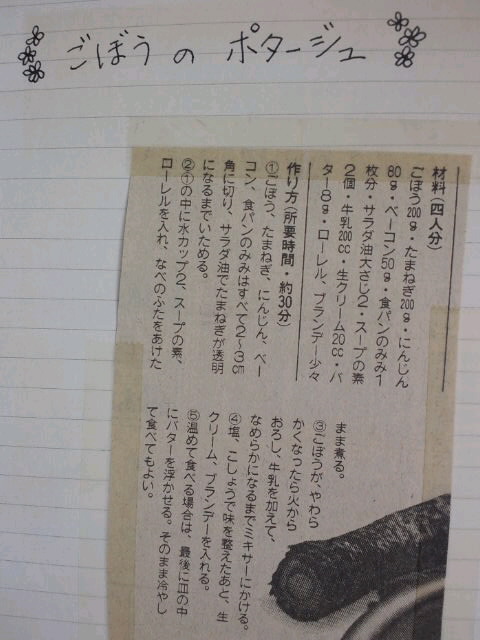 ごぼうのポタージュ
材料（四人分）
ごぼう200g・たまねぎ200g・にんじん
80g・ベーコン50g・食パンのみみ1
枚分・サラダ油大さじ2・スープの素
2個・牛乳200cc・生クリーム20cc・バ
ター8g・ローレル、ブランデー少々
作り方（所要時間・約30分）
①ごぼう、たまねぎ、にんじん、ベー
コン、食パンのみみはすべて2〜3cm
角に切り、サラダ油でたまねぎが透明
になるまでいためる。
②①の中に水カップ2、スープの素、
ローレルを入れ、なべのふたをあけた
まま煮る。
③ごぼうが、やわら
かくなったら火から
おろし、牛乳を加えて、
なめらかになるまでミキサーにかける。
④塩、こしょうで味を整えたあと、生
クリーム、ブランデーを入れる。
⑤温めて食べる場合は、最後に皿の中
にバターを浮かせる。そのまま冷やし
て食べてもよい。